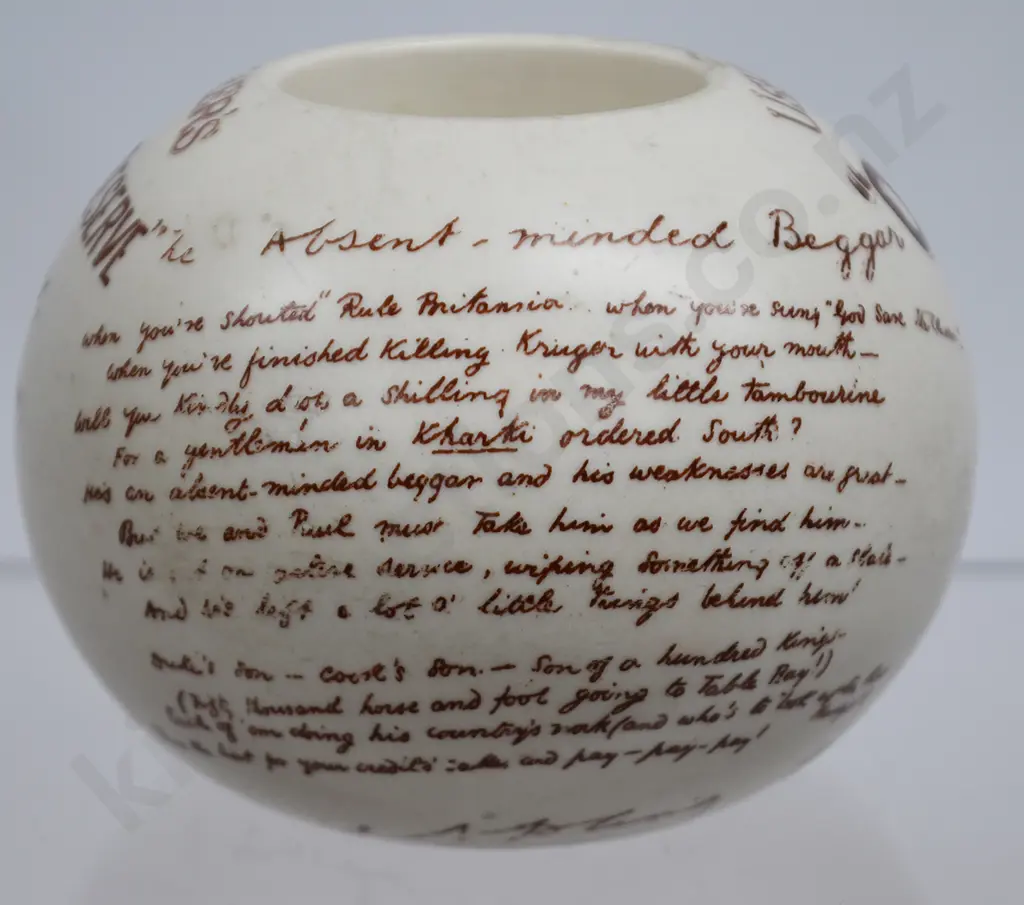 ERVE"
he Absent-minded Beggar
when you've shouted "Rule Britannia" when you've sung "God Save
when you've finished killing Kruger with your mouth—
will you kindly drop a shilling in my little tambourine
For a gentleman in Kharki ordered South?
He's an absent-minded beggar and his weaknesses are great—
But we and Paul must take him as we find him—
He is out on active service, wiping something off a slate—
And he's left a lot o' little things behind him!
Duke's son — cook's son — Son of a hundred Kings—
(Fifty thousand horse and foot going to Table Bay!)
Each of 'em doing his country's work (and who's to look
for your credit's sake and pay—pay—pay!